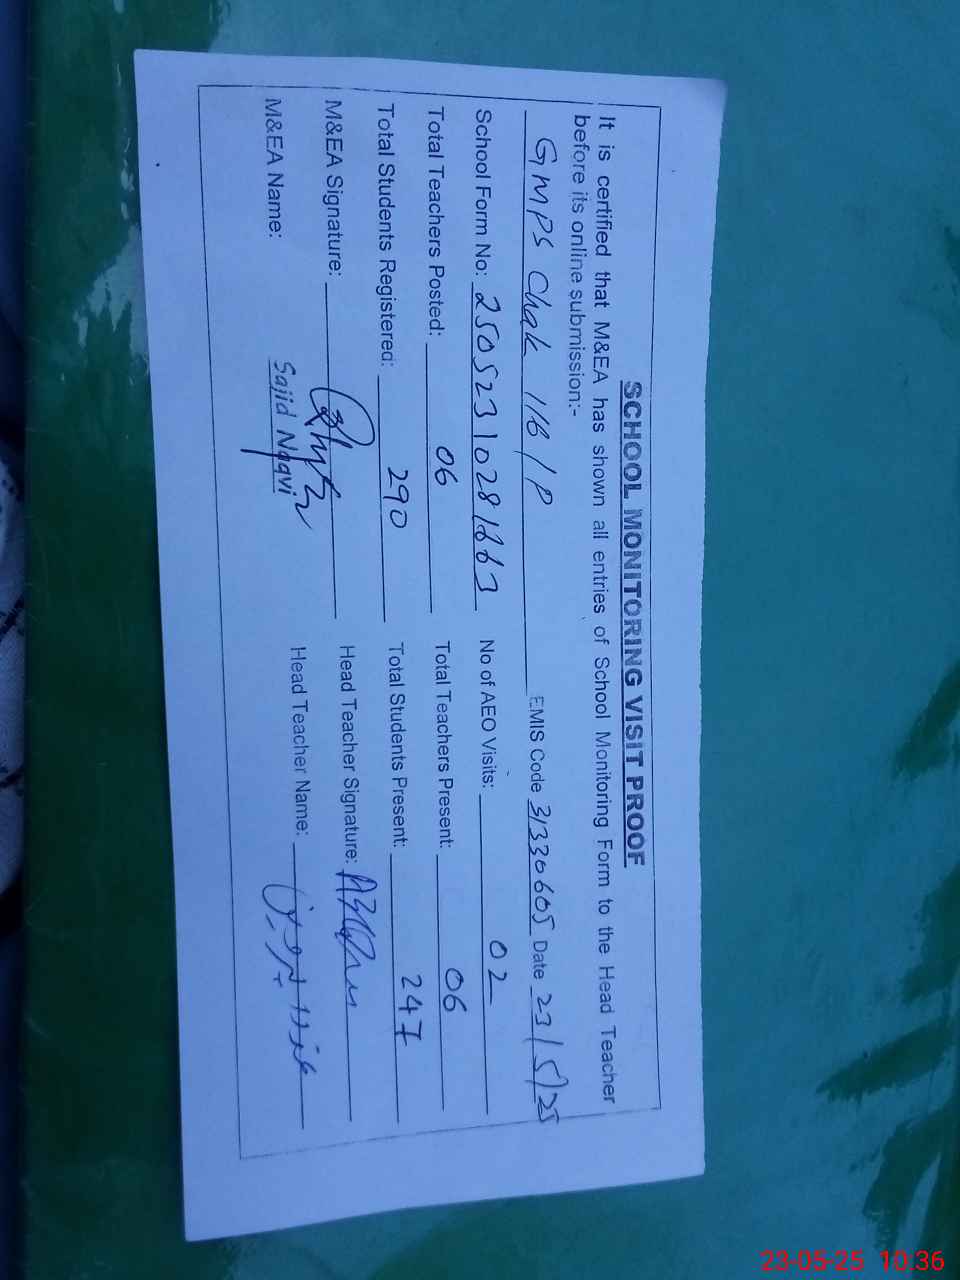 SCHOOL MONITORING VISIT PROOF
It is certified that M&EA has shown all entries of School Monitoring Form to the Head Teacher
before its online submission:-
GMPS Chak 116/P EMIS Code 31330605 Date 23/5/25
School Form No: 25052310281663 No of AEO Visits: 02
Total Teachers Posted: 06 Total Teachers Present: 06
Total Students Registered: 290 Total Students Present: 247
M&EA Signature: Head Teacher Signature:
M&EA Name: Sajid Naqvi Head Teacher Name:
23-05-25 10:36